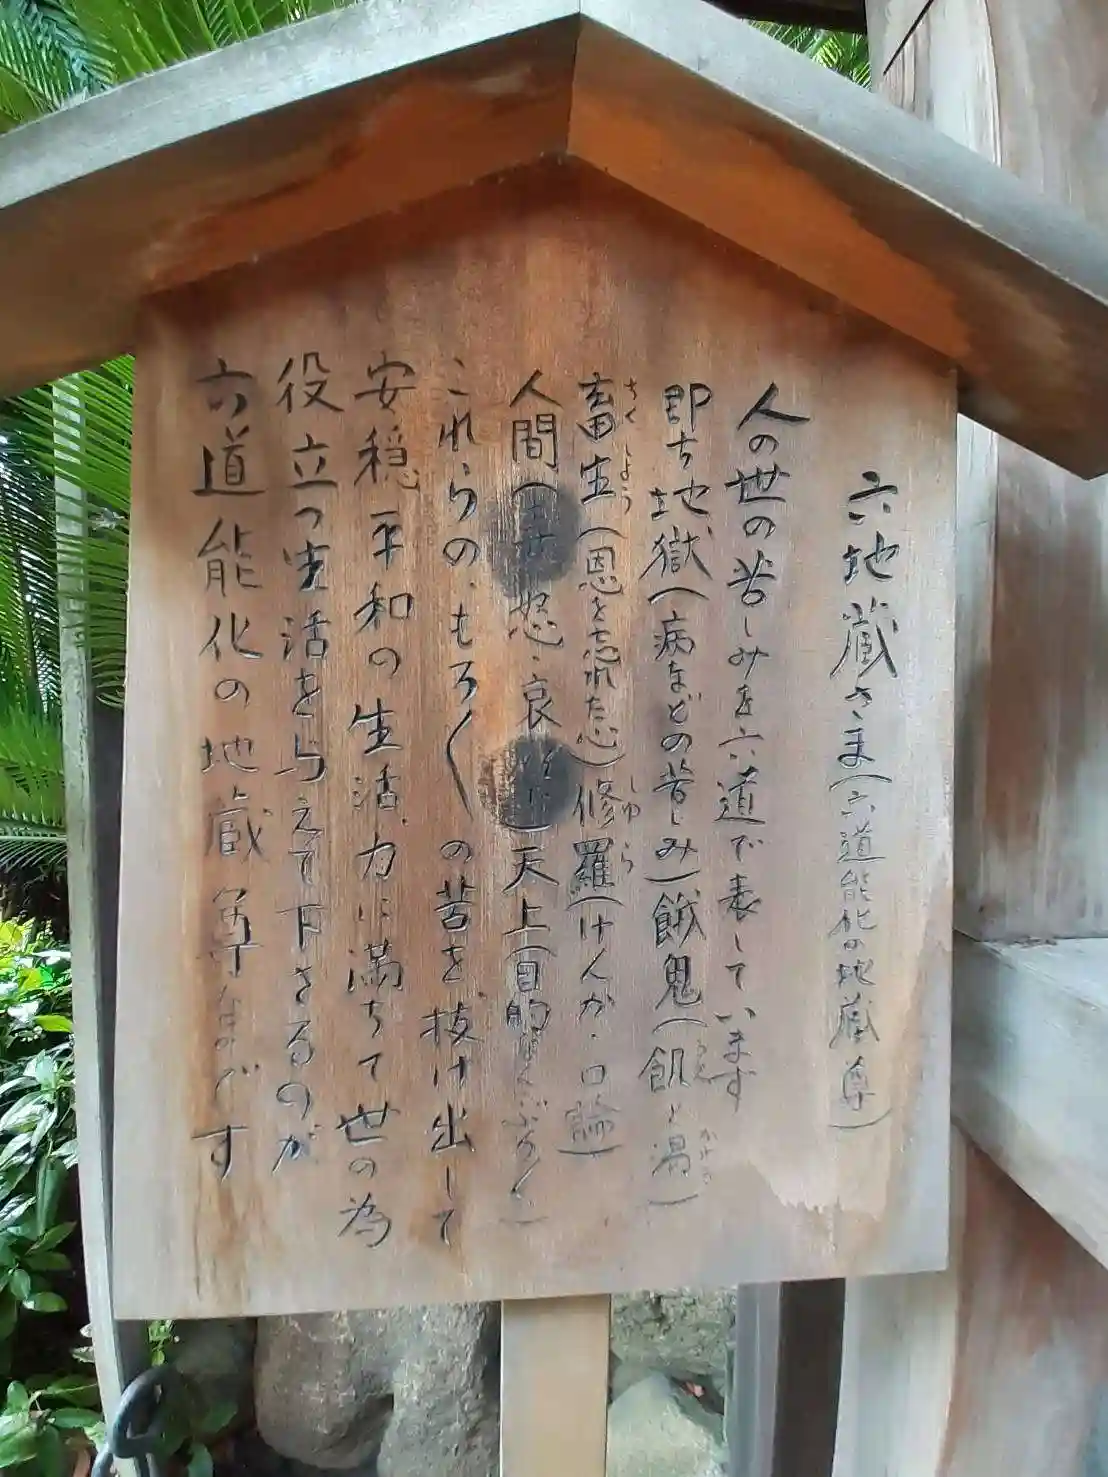 六地蔵さま(六道能化の地蔵尊)
人の世の苦しみを六道で表しています
即ち地獄(病などの苦しみ)餓鬼(飢と渇)
畜生(恩を忘れた心)修羅(けんか・口論)
人間(怒・哀)天上(目的なくぶらぶら)
これらの、もろ〱の苦を抜け出して
安穏平和の生活、力に満ちて世の為
役立つ生活を与えて下さるのが
六道能化の地蔵尊なのです